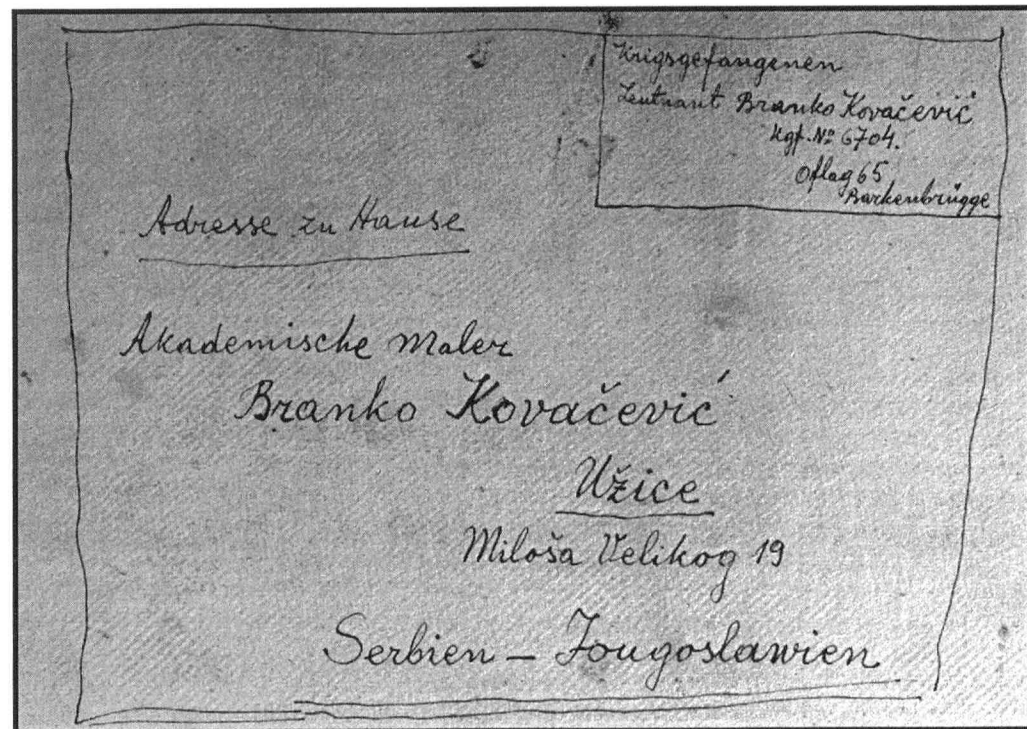 Krigsgefangenen
Leutnant Branko Kovačević
Kgf. Nº 6704.
Oflag 65
Barkenbrügge
Adresse zu Hause
Akademische Maler
Branko Kovačević
Užice
Miloša Velikog 19
Serbien – Jougoslawien